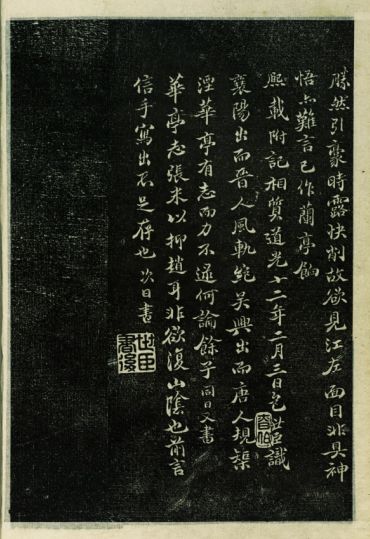 然引豪時露快削故欲見江左面目非具神
悟亦難言已作蘭亭
熙載附記相質道光十二年二月三日包世臣識
襄陽出而晉人風軌絕吳興出而唐人規榘
湮華亭有志而力不逮何論餘子同日又書
華亭志張米以抑趙耳非欲復山陰也前言
信手寫出不足存也次日書
慎伯
世臣
書後